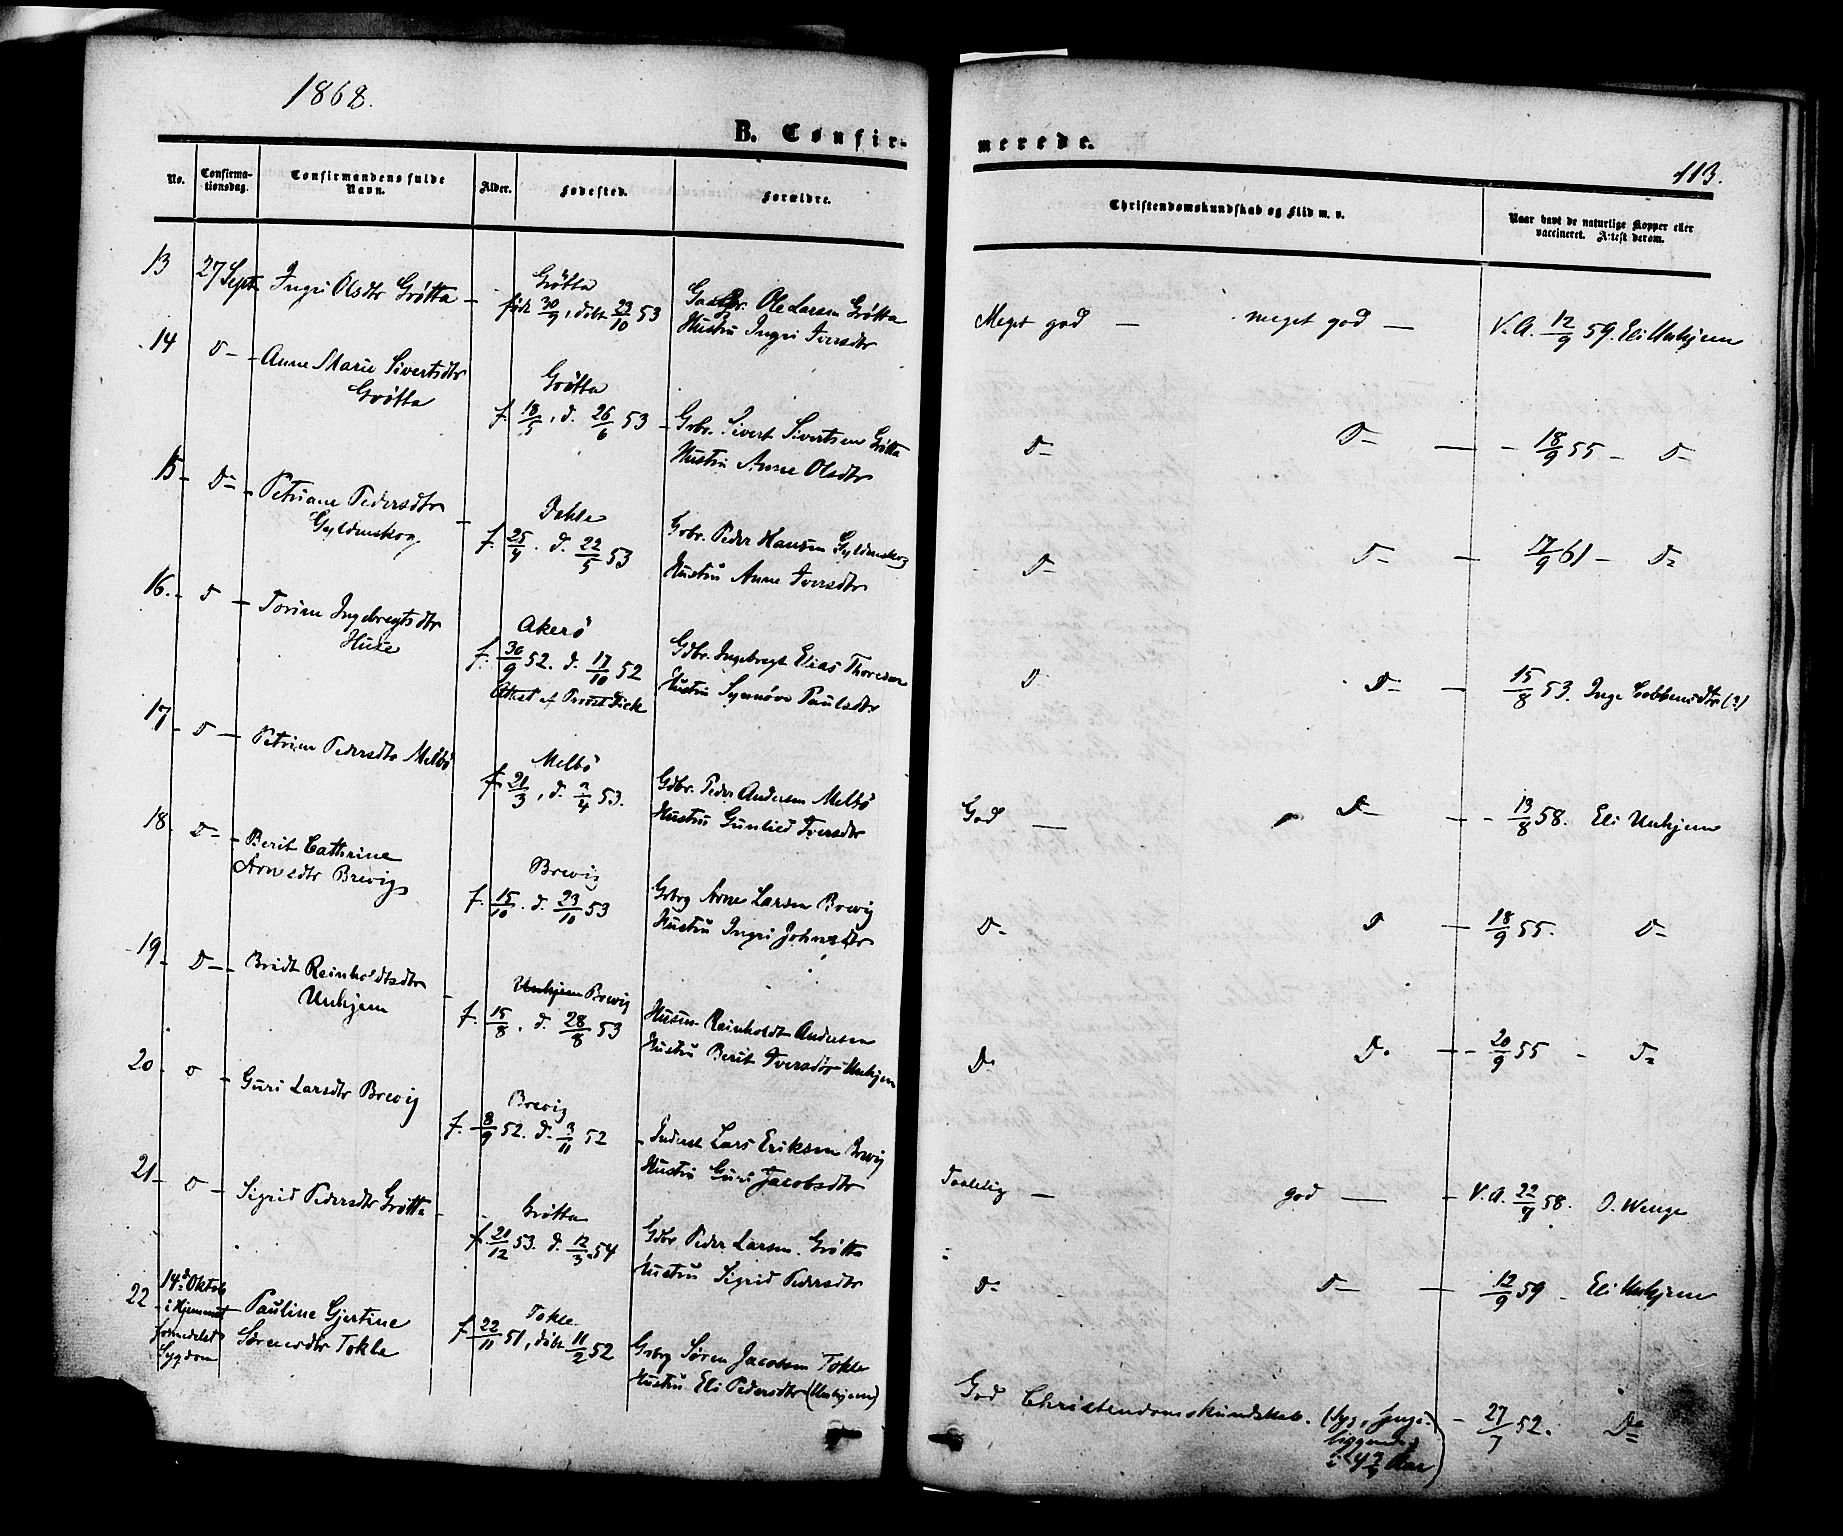 1868.
B. Confir-
merede.
113.
No.
Confirma-
tionsdag.
Confirmandens fulde
Navn.
Alder.
Fødested.
Forældre.
Christendomskundskab og Flid m. v.
Naar havt de naturlige Kopper eller
vaccineret. Attest derom.
13 27 Sept. Ingri Olsdtr Grøtta —
Grötta
født 30/9, döbt 23/10 53
Gaardbr. Ole Larsen Grøtta
Hustru Ingri Iversdtr
Meget god — meget god — V.A. 12/9 59. Eli Unhjem
14 D— Anne Marie Sivertsdtr
Grøtta
Grötta
f. 18/5, d. 26/6 53 —
Gdbr. Sivert Sivertsen Grötta
Hustru Anne Olsdtr
D— D— — - 18/9 55 - D—
15 - D— Petriane Pedersdtr
Gyldenskog —
Tokle
f. 25/4. d. 22/5 53
Gdbr. Peder Hansen Gyldenskog
Hustru Anne Iversdtr
D— D— — 17/9 61 — D—
16. - D — Torine Ingebregtsdtr
Huse
Akerö
f. 30/9 52. d. 17/10 52
Attest af Provst Dick
Gdbr. Ingebregt Elias Thoresen
Hustru Synnöve Paulsdtr
D D— — 15/8 53. Inge (?)
17 - D — Petrine Pedersdtr Melbö
Melbö
f. 21/3, d. 2/4 53.
Gdbr. Peder Andersen Melbö
Hustru Gunlied Iversdtr
God — D— — 13/8 58. Eli Unhjem
18. D— Berit Cathrine
Arnesdtr Brevig
Brevig
f. 15/10. d. 23/10 53
Gdbrg Arne Larsen Brevig
Hustru Ingri Johnsdtr
D— D — 18/9 55. D—
19 D— Bridt Reinholdtsdtr
Unhjem
Unhjem Brevig
f. 15/8. d. 28/8 53
Husm. Reinholdt Andersen
Hustru Berit Iversdtr Unhjem
D— D— — 20/9 55 - D—
20 D — Guri Larsdtr Brevig
Brevig
f. 8/9 52. d. 3/11 52
Inderst Lars Eriksen Brevig
Hustru Guri Jacobsdtr
Taalelig — god — V.A. 22/7 58. O. Wenge
21 D — Sigrid Pedersdtr Grötta -
Grötta
f. 21/12 53. d. 12/3 54
Gdbr. Peder Larsen Grötta
Hustru Sigrid Pedersdtr
D— D— — 12/9 59 - Eli Unhjem
22 14d Oktob
i Hjemmet
formedelst
Sygdom
Pauline Gjertine
Sørensdtr Tokle
Tokle
f. 22/11 51, döbt 11/2 52
Gdbrg Sören Jacobsen Tokle
Hustru Eli Pedersdtr (Unhjem)
God Christendomskundskab. (Syg, senge-
liggende
i 4 Aar)
27/7 52. D—